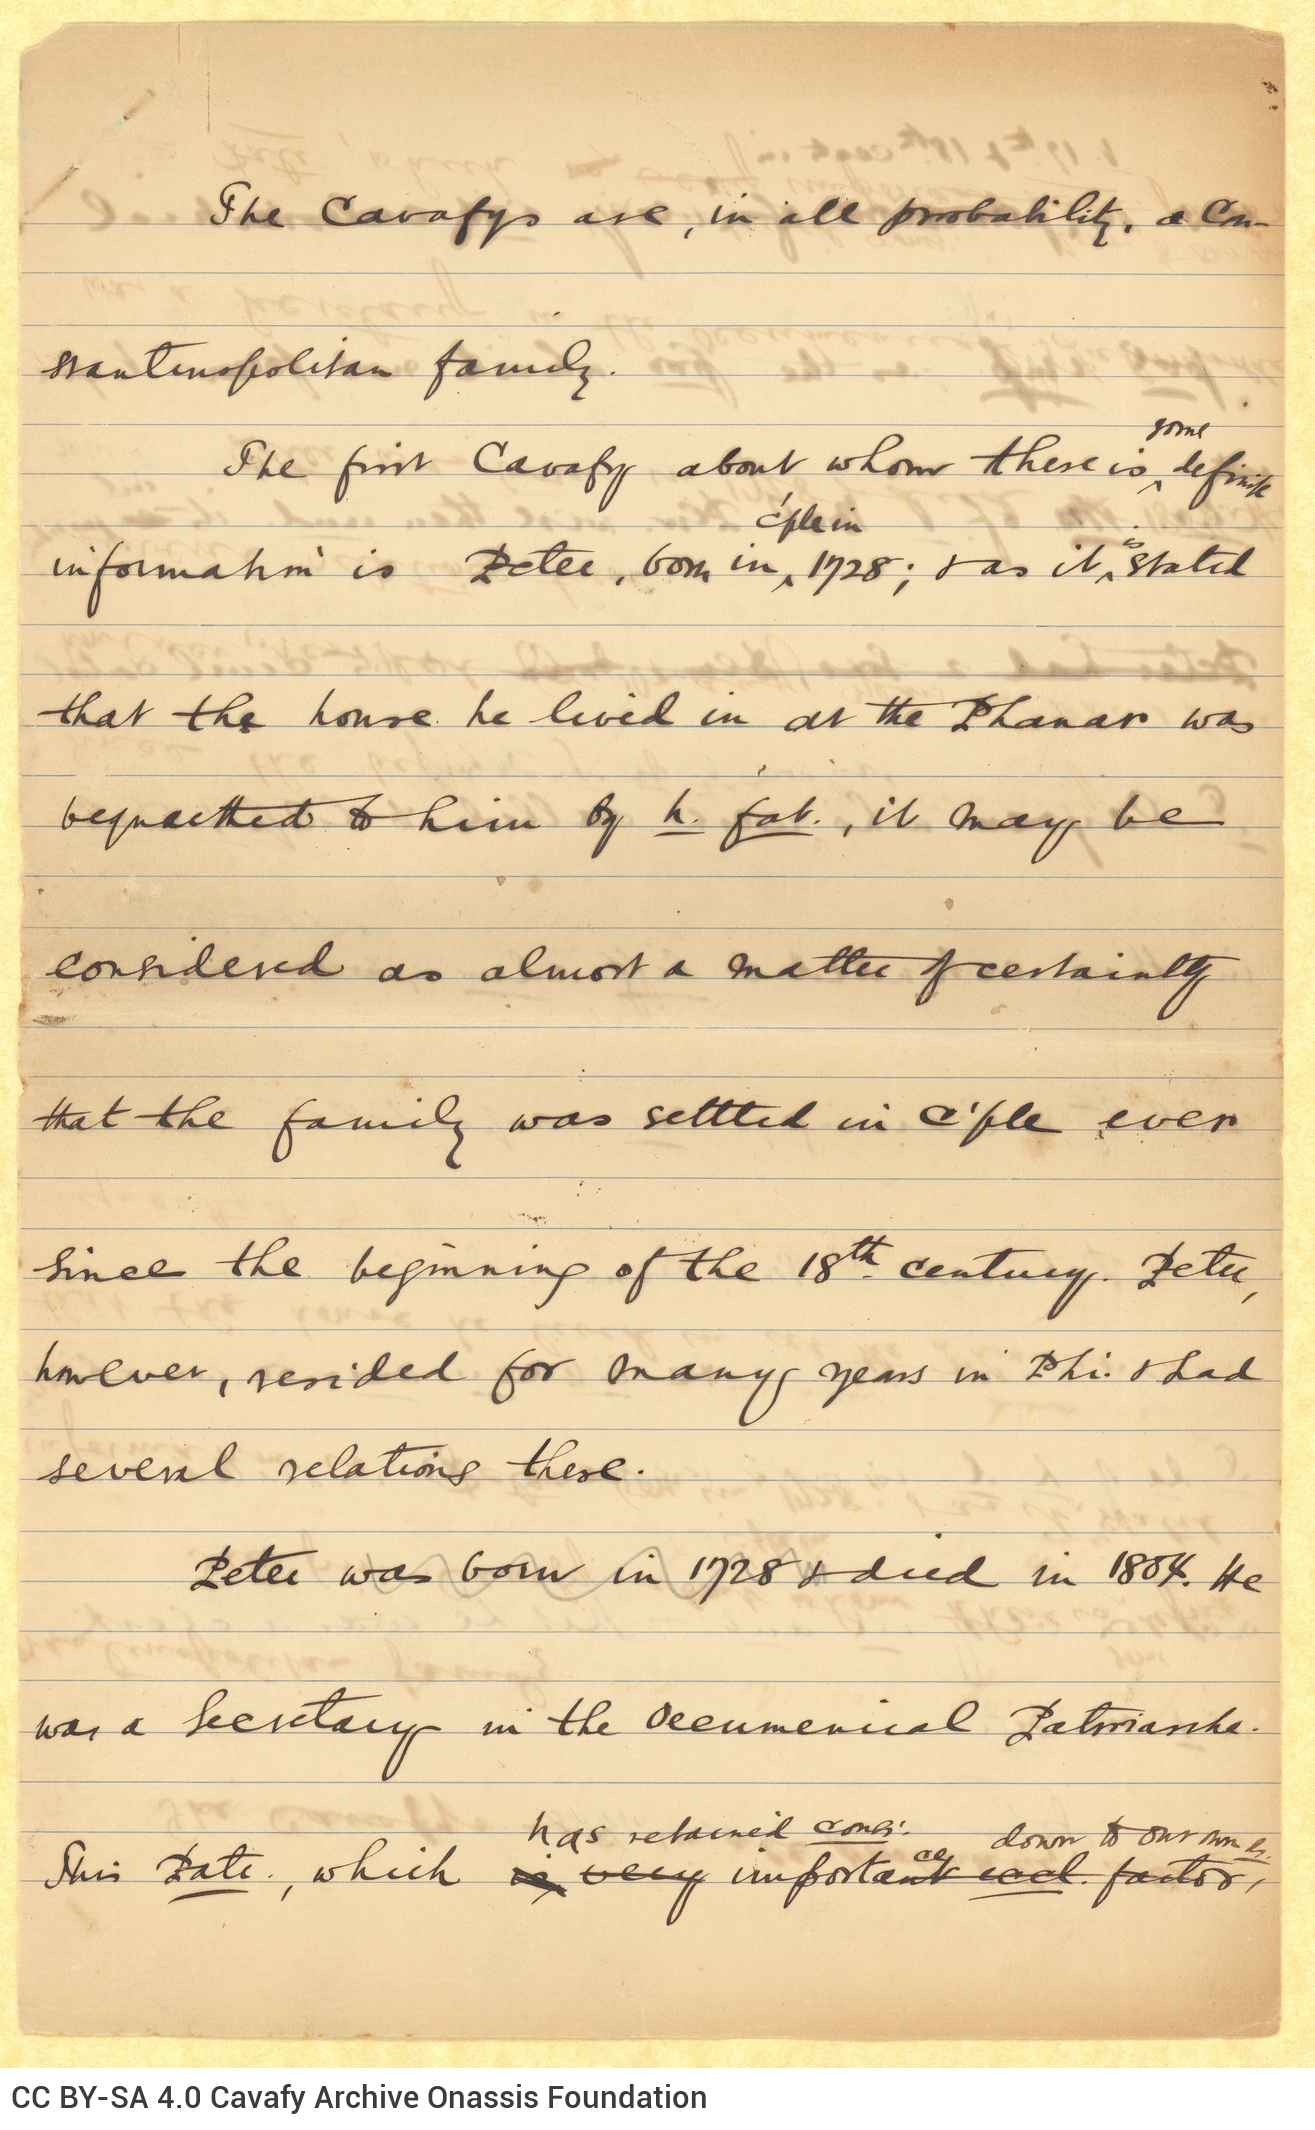 The Cavafys are, in all probability, a Con-
stantinopolitan family.
The first Cavafy about whom there is some definite
information is Peter, born in C'ple in 1728; & as it is stated
that the house he lived in at the Phanar was
bequeathed to him by h. fat., it may be
considered as almost a matter of certainty
that the family was settled in C'ple ever
since the beginning of the 18th century. Peter,
however, resided for many years in Phi. & had
several relations there.
Peter was born in 1728 & died in 1804. He
was a Secretary in the Oecumenical Patriarcha.
has retained consi. down to our own
This Patr., which is very important ce eccl. factor,
CC BY-SA 4.0 Cavafy Archive Onassis Foundation